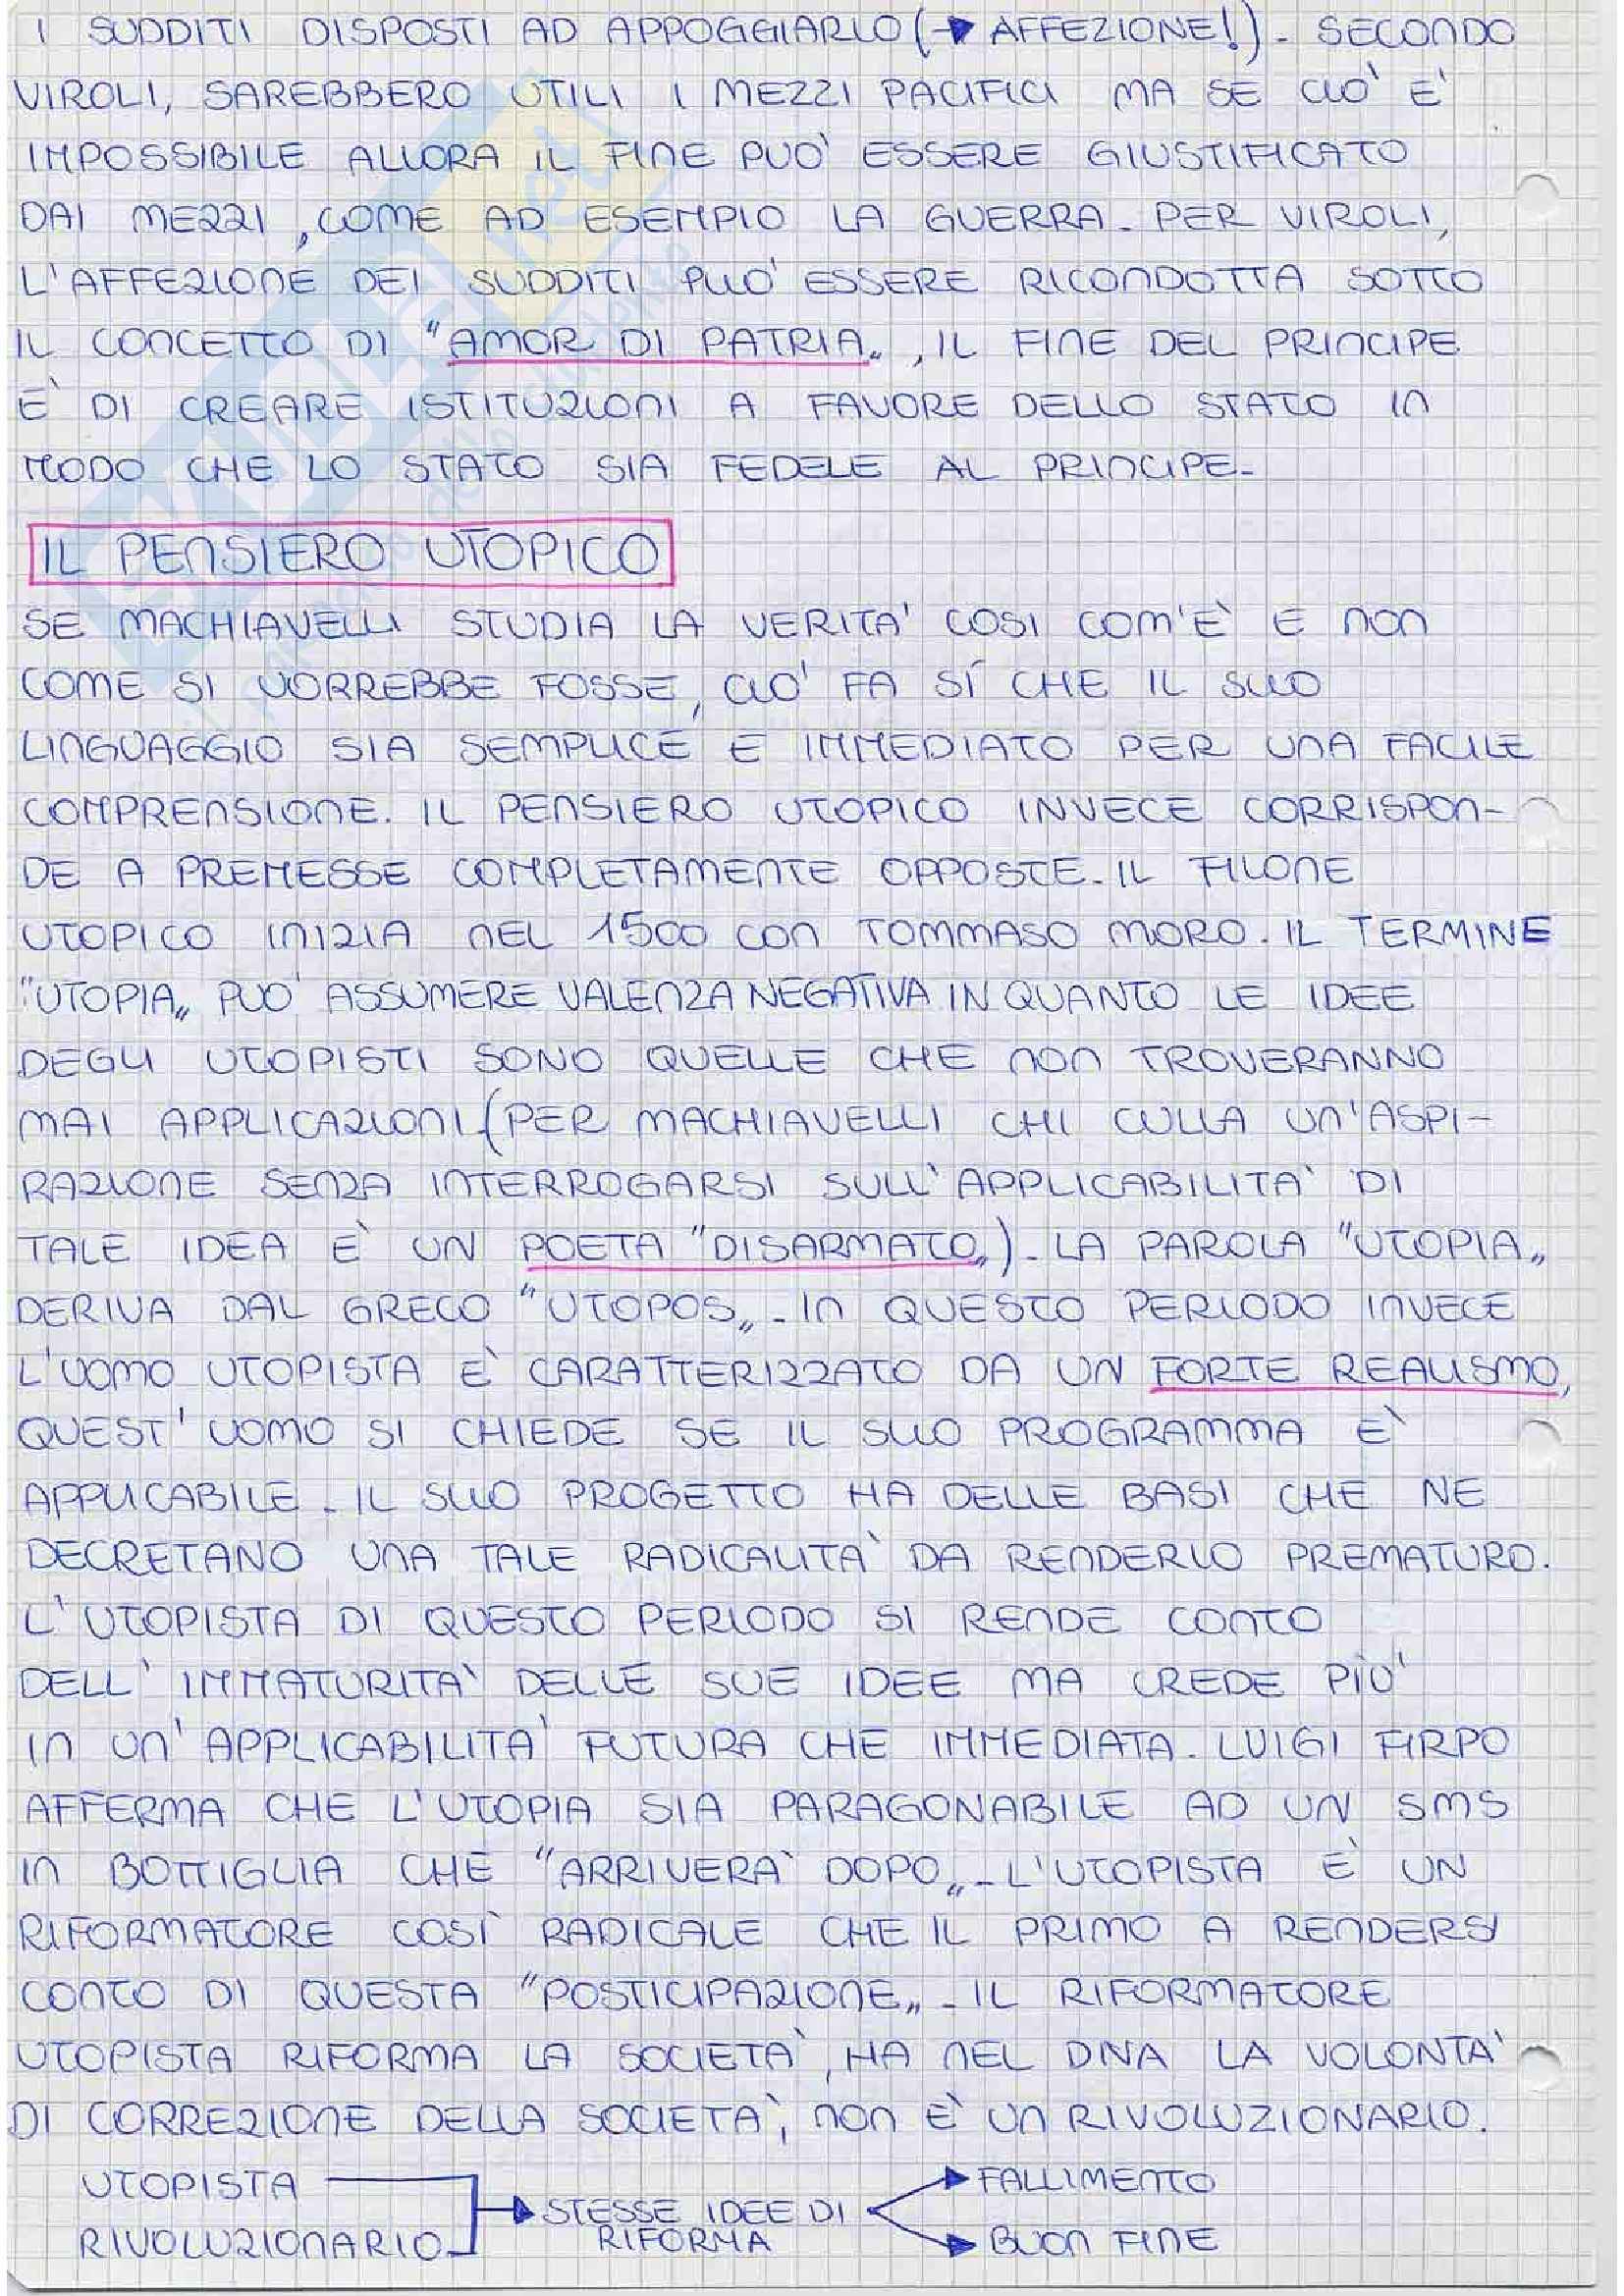 I SUDDITI DISPOSTI AD APPOGGIARLO (→ AFFEZIONE!). SECONDO
VIROLI, SAREBBERO UTILI I MEZZI PACIFICI MA SE CIO' E'
IMPOSSIBILE ALLORA IL FINE PUO' ESSERE GIUSTIFICATO
DAI MEZZI, COME AD ESEMPIO LA GUERRA. PER VIROLI,
L'AFFEZIONE DEI SUDDITI PUO' ESSERE RICONDOTTA SOTTO
IL CONCETTO DI "AMOR DI PATRIA", IL FINE DEL PRINCIPE
E' DI CREARE ISTITUZIONI A FAVORE DELLO STATO IN
MODO CHE LO STATO SIA FEDELE AL PRINCIPE.
IL PENSIERO UTOPICO
SE MACHIAVELLI STUDIA LA VERITA' COSI COM'È E NON
COME SI VORREBBE FOSSE, CIO' FA SÍ CHE IL SUO
LINGUAGGIO SIA SEMPLICE E IMMEDIATO PER UNA FACILE
COMPRENSIONE. IL PENSIERO UTOPICO INVECE CORRISPON-
DE A PREMESSE COMPLETAMENTE OPPOSTE. IL FILONE
UTOPICO INIZIA NEL 1500 CON TOMMASO MORO. IL TERMINE
"UTOPIA" PUO' ASSUMERE VALENZA NEGATIVA IN QUANTO LE IDEE
DEGLI UTOPISTI SONO QUELLE CHE NON TROVERANNO
MAI APPLICAZIONI (PER MACHIAVELLI CHI CULLA UN'ASPI-
RAZIONE SENZA INTERROGARSI SULL'APPLICABILITA' DI
TALE IDEA E' UN POETA "DISARMATO"). LA PAROLA "UTOPIA"
DERIVA DAL GRECO "UTOPOS". IN QUESTO PERIODO INVECE
L'UOMO UTOPISTA E' CARATTERIZZATO DA UN FORTE REALISMO,
QUEST'UOMO SI CHIEDE SE IL SUO PROGRAMMA E'
APPLICABILE. IL SUO PROGETTO HA DELLE BASI CHE NE
DECRETANO UNA TALE RADICALITA' DA RENDERLO PREMATURO.
L'UTOPISTA DI QUESTO PERIODO SI RENDE CONTO
DELL'IMMATURITA' DELLE SUE IDEE MA CREDE PIU'
IN UN'APPLICABILITA' FUTURA CHE IMMEDIATA. LUIGI FIRPO
AFFERMA CHE L'UTOPIA SIA PARAGONABILE AD UN SMS
IN BOTTIGLIA CHE "ARRIVERA' DOPO". L'UTOPISTA E' UN
RIFORMATORE COSÌ RADICALE CHE IL PRIMO A RENDERSI
CONTO DI QUESTA "POSTICIPAZIONE". IL RIFORMATORE
UTOPISTA RIFORMA LA SOCIETA', HA NEL DNA LA VOLONTA'
DI CORREZIONE DELLA SOCIETA', NON E' UN RIVOLUZIONARIO.
UTOPISTA
RIVOLUZIONARIO
→ STESSE IDEE DI
RIFORMA
→ FALLIMENTO
→ BUON FINE